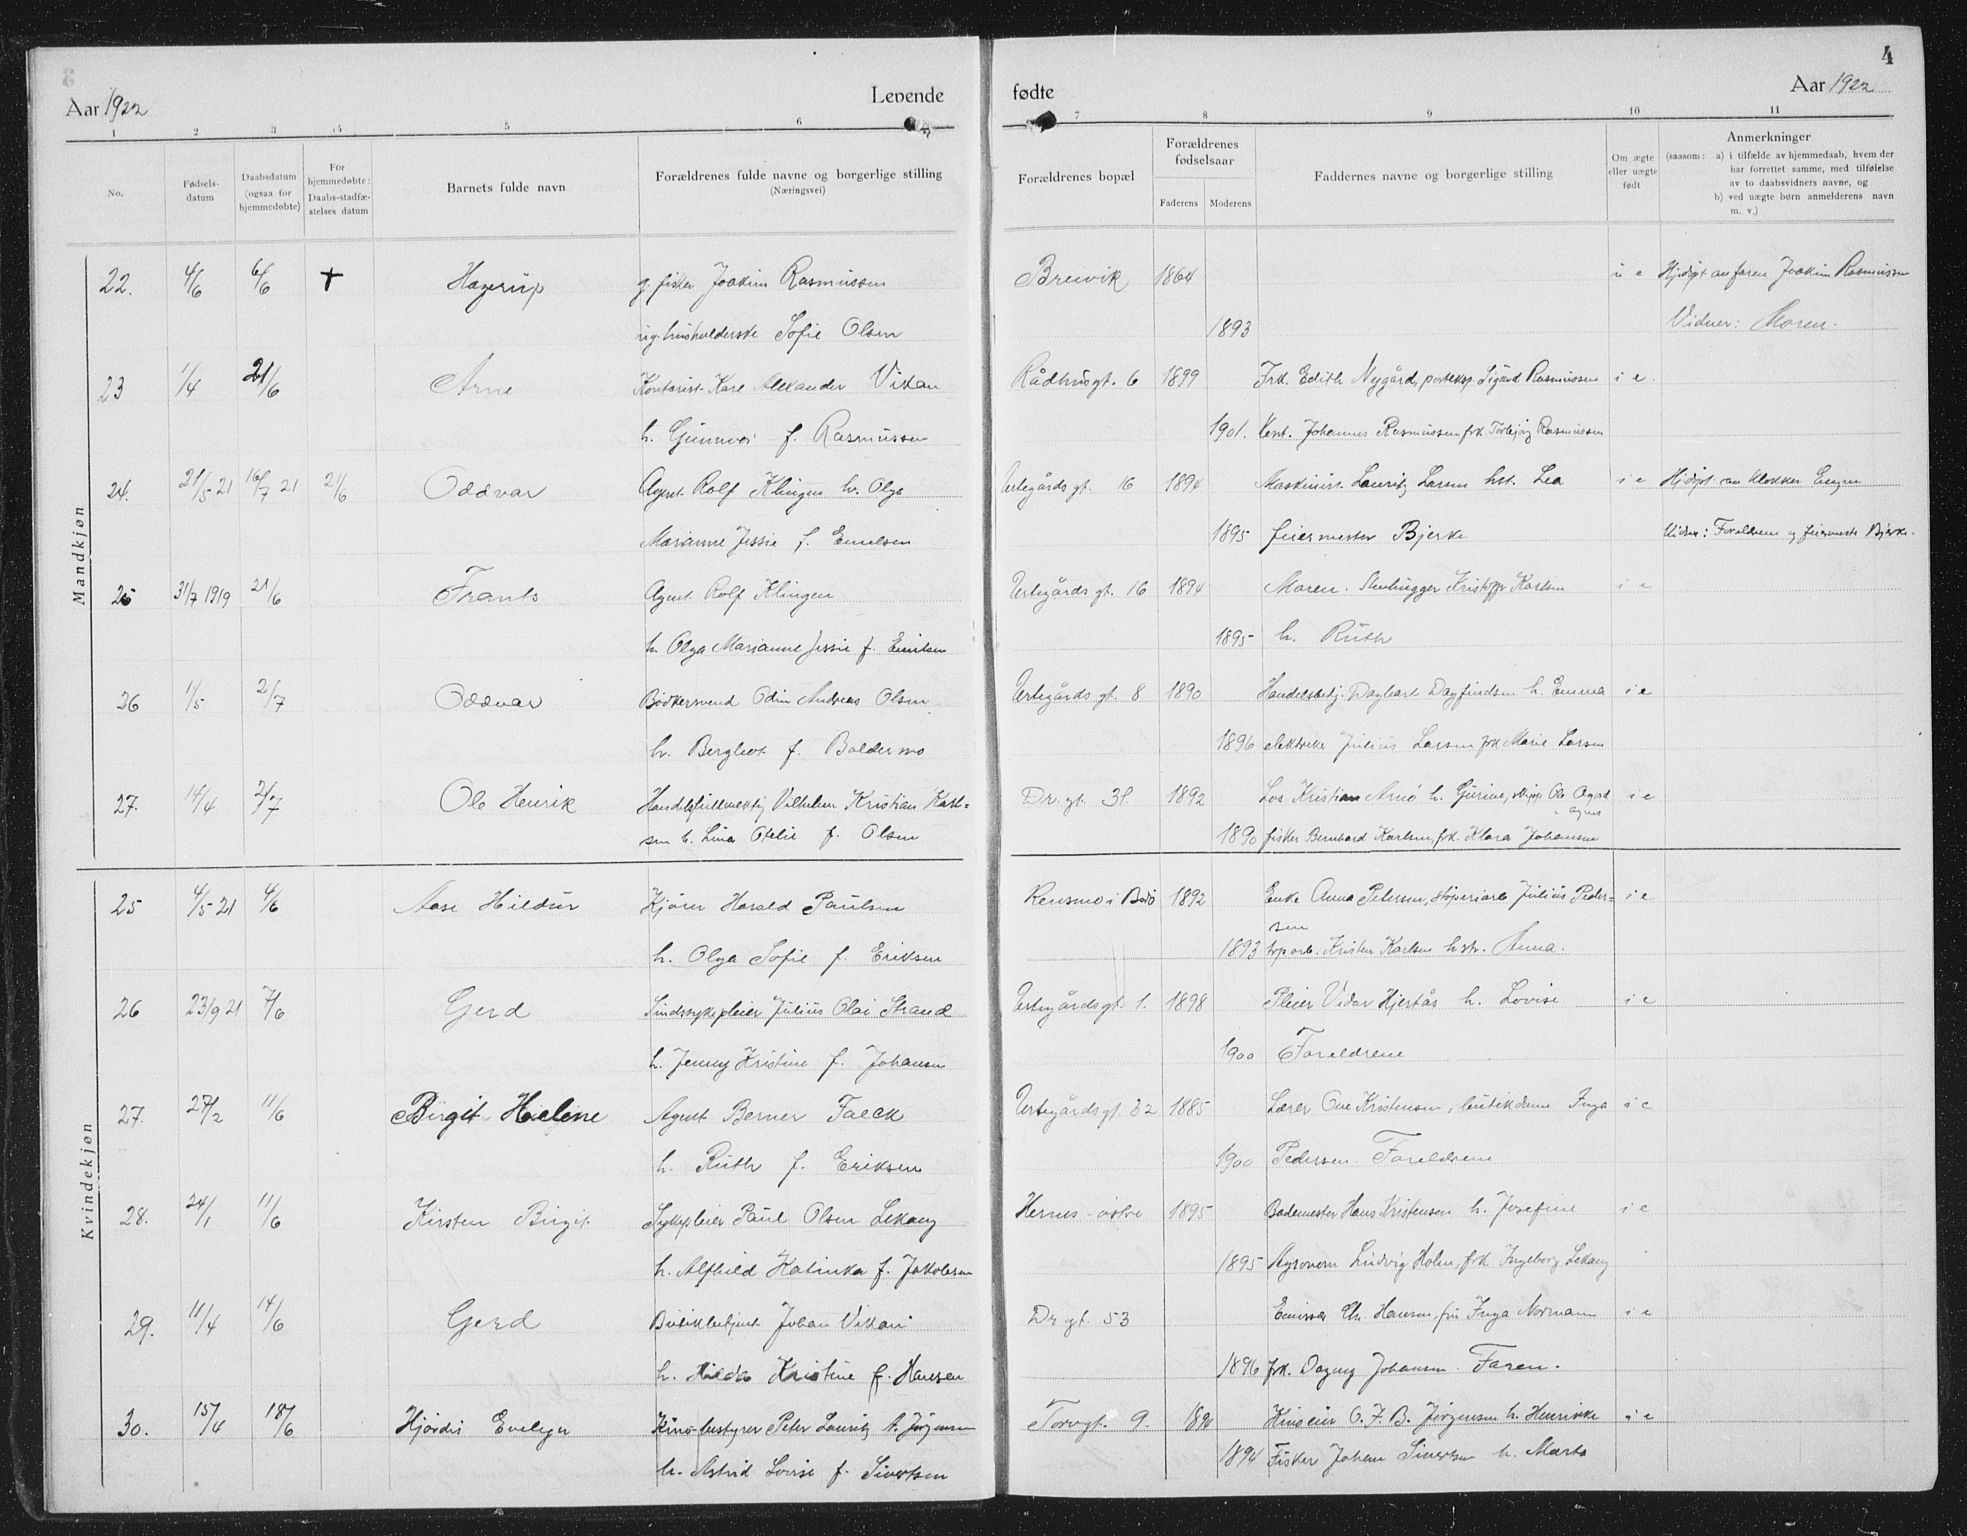 Aar 1922
Levende
1 2 3 4 5 6
No.
Fødsels-
datum
Daabsdatum
(ogsaa for
hjemmedøbte)
For
hjemmedøbte:
Daabs-stadfæ-
stelses datum
Barnets fulde navn
Forældrenes fulde navne og borgerlige stilling
(Næringsvei)
Mandkjøn
22. 4/6 6/6 + Hagerup g. fisker Joakim Rasmussen
ug. husholderske Sofie Olsen
23 1/4 21/6 Arne Kontorist Kare Alexander Vikan
h. Gunnvor f. Rasmussen
24. 21/5 21 16/7 21 21/6 Oddvar Agent Rolf Klingen h. Olga
Marianne Jessie f. Emilsen
25 31/7 1919 21/6 Frants Agent Rolf Klingen
h. Olga Marianne Jessie f. Emilsen
26 1/5 2/7 Oddvar Bødkersvend Odin Andreas Olsen
h. Bergliot f. Boldermo
27. 14/4 2/7 Ole Henrik Handelsfullmektig Vilhelm Kristian Karl=
sen h. Lina Otelie f. Olsen
Kvindekjøn
25 4/5 21 4/6 Aase Hildur Kjører Harald Paulsen
h. Olga Sofie f. Eriksen
26 23/9 21 7/6 Gerd Sindssykepleier Julius Olai Strand
h. Jenny Kristine f. Johansen
27. 27/2 11/6 Birgit Helene Agent Berner Falck
h. Ruth f. Eriksen
28. 24/1 11/6 Kirsten Birgit Sykepleier Paul Olsen Lekang
h. Alfhild Katinka f. Jakobsen
29. 11/4 14/6 Gerd Butikbetjent Johan Vikan
h. Hilda Kristine f. Hansen
30. 15/4 18/6 Hjørdis Evelyn Kino-bestyrer Peter Lauritz A. Jørgensen
h. Astrid Lovise f. Sivertsen
4
fødte
Aar 1922
7 8 9 10 11
Forældrenes bopæl
Forældrenes
fødselsaar
Faderens Moderens
Faddernes navne og borgerlige stilling
Om ægte
eller uægte
født
Anmerkninger
(saasom: a) i tilfælde av hjemmedaab, hvem der
har forrettet samme, med tilføielse
av to daabsvidners navne, og
b) ved uægte børn anmelderens navn
m. v.)
Breivik 1864 u e Hjdøpt av faren Joakim Rasmussen
1893 Vidner: Moren.
Rådhusgt. 6 1899 Frk. Edith Nygård, Sigurd Rasmussen i e.
1901. Johannes Rasmussen frk Torbjørg Rasmussen
Urtegårds gt. 16 1894 Maskinist Lauritz Larsen hst. Lea i e Hjdøpt av klokker Engen
1895 feiermester Bjerke Vidner: Foreldrene og feiermester Bjerke.
Urtegårds gt. 16 1894 Moren. Stenhugger Kristoffer Karlsen i e
1895 h. Ruth
Urtegårds gt. 8 1890 Handelsbetj. Dagbart Dagfindsen h. Emma i e
1896 elektriker Julius Larsen frk Marie Larsen
Dr. gt. 31. 1892 Los Kristian Arnö h. Gurine, skipp. Ole i e
1890 fisker Bernhard Karlsen, frk. Klara Johansen
Rensmo i Bodø 1892 Enke Anna Petersen, støperiarb Julius Peder= i e
sen
1893 Kristen Karlsen hstr. Anna.
Urtegårdsgt. 1. 1898 Pleier Vidar Hjertås h. Lovise i e
1900 Foreldrene
Urtegårdsgt. 32 1885 Lærer Ove Kristensen, butikdame Inga i e
1900 Pedersen. Foreldrene
Hernes - østre 1895 Bademester Hans Kristensen h. Josefine i e
1895 Agronom Ludvig Holm, frk Ingeborg Lekang
Dr gt. 53 Emissær Chr. Hansen, fru Inga Normann i e
1896 frk. Dagny Johansen. Faren.
Torvgt. 9. O. F. B. Jørgensen h. Henrikke i e
1894 Fisker Johan Sivertsen h. Marta